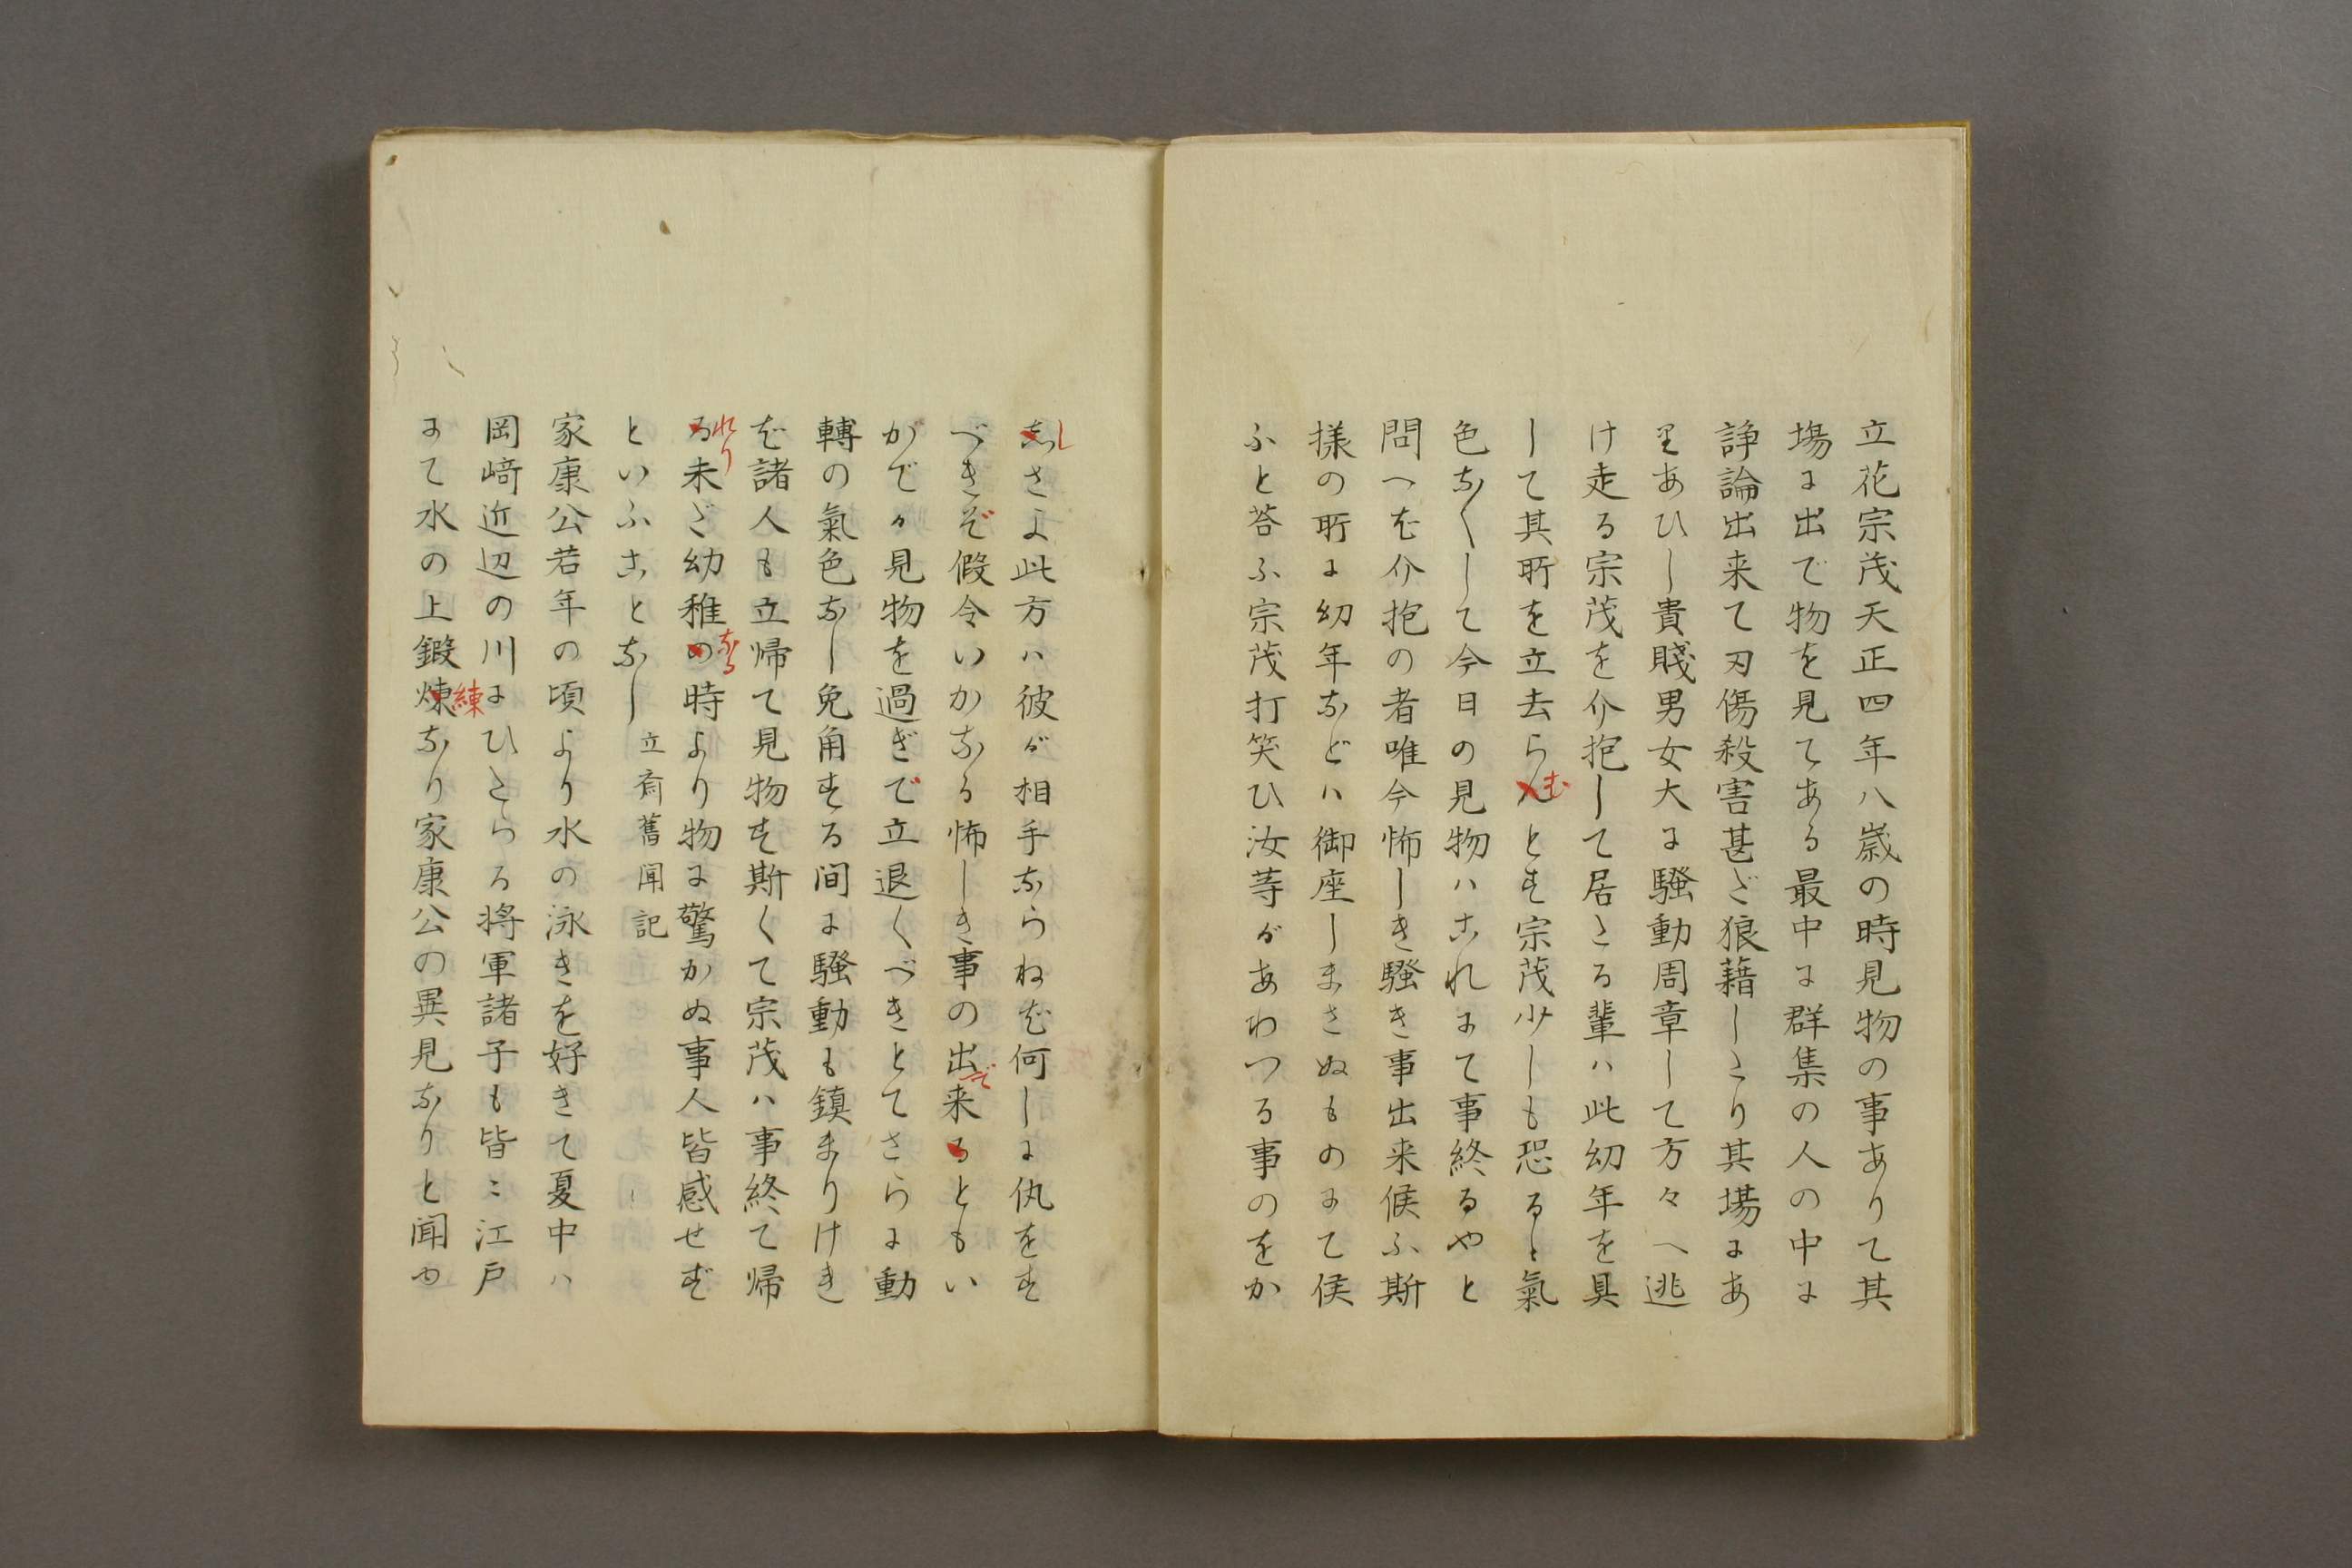 立花宗茂天正四年八歳の時見物の事ありて其
場に出で物を見てある最中に群集の人の中に
諍論出来て刃傷殺害甚だ狼藉したり其場にあ
りあひし貴賤男女大に騒動周章して方々へ逃
け走る宗茂を介抱して居たる輩ハ此幼年を具
して其所を立去らんむとす宗茂少しも恐るゝ氣
色なくして今日の見物ハこれにて事終るやと
問へば介抱の者唯今怖しき騒き事出来候ふ斯
様の所に幼年などハ御座しまさぬものにて侯
ふと荅ふ宗茂打笑ひ汝等があわつる事のをか
しさよ此方ハ彼が相手ならねば何しに仇をす
べきぞ假令いかなる怖しき事の出で来るともい
かでか見物を過ぎで立退くべきとてさらに動
轉の氣色なし兔角する間に騒動も鎮まりけれ
ば諸人も立帰て見物す斯くて宗茂ハ事終て帰
るれり未だ幼稚のなる時より物に驚かぬ事人皆感せず
といふことなし 立斎舊聞記
家康公若年の頃より水の泳きを好きて夏中ハ
岡﨑近辺の川にひたらる将軍諸子も皆〻江戸
にて水の上鍛煉練なり家康公の異見なりと聞ゆ